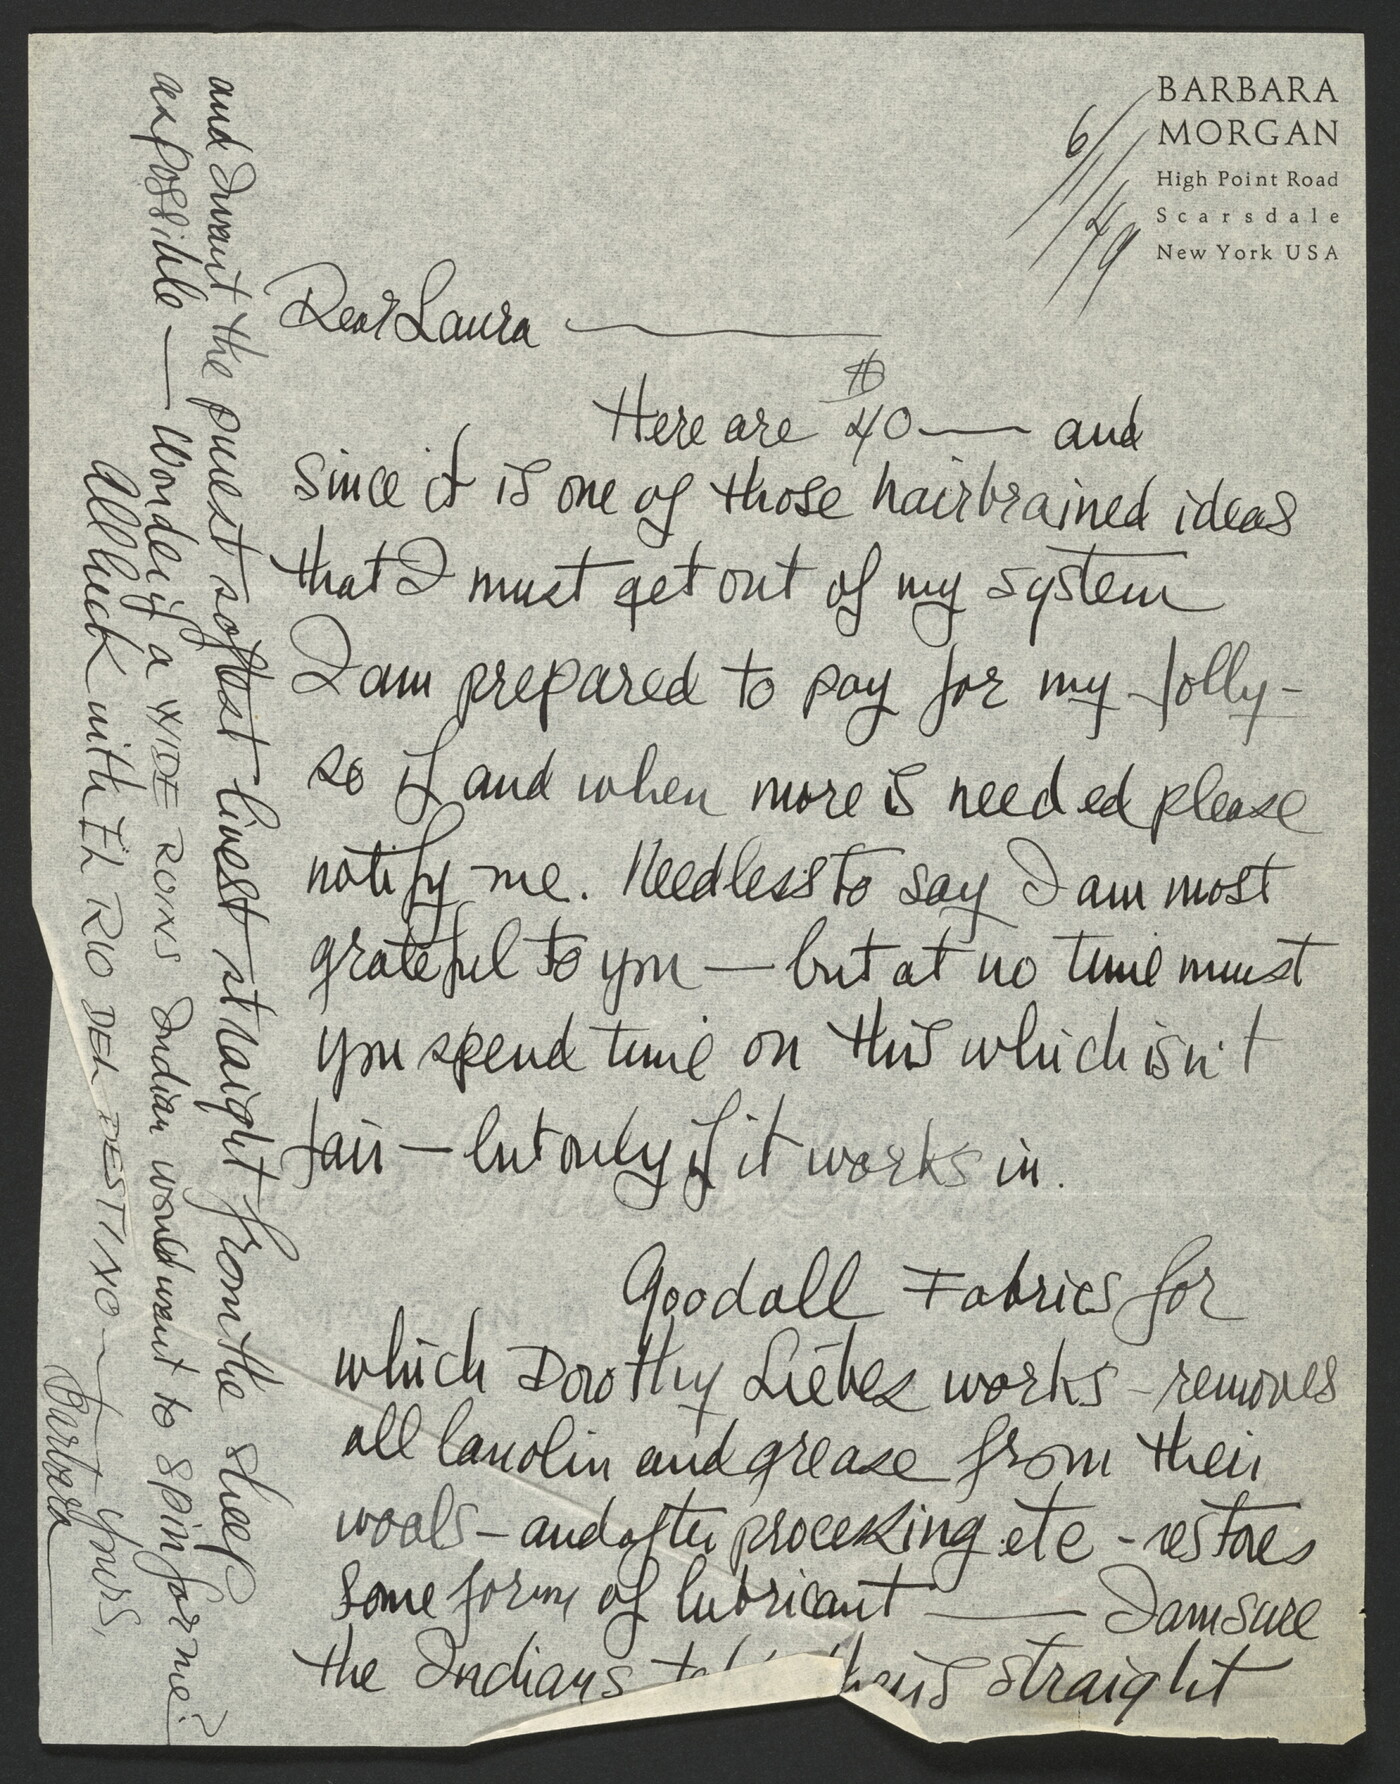 BARBARA
MORGAN
High Point Road
Scarsdale
New York USA
6/1/49
Dear Laura —
Here are $40 — and
since it is one of those hairbrained ideas
that I must get out of my system
I am prepared to pay for my folly -
so if and when more is needed please
notify me. Needless to say I am most
grateful to you — but at no time must
you spend time on this which isn't
fair — but only if it works in.
Goodall Fabrics for
which Dorothy Liebes works - removes
all lanolin and grease from their
wools - and after processing etc - restores
some form of lubricant — I am sure
the Indians theirs straight
and I want the purest softest livest straight from the sheep
as possible — Wonder if a WIDE ROINS Indian would want to spin for me?
All luck with EL RIO DEL DESTINO — yours,
Barbara